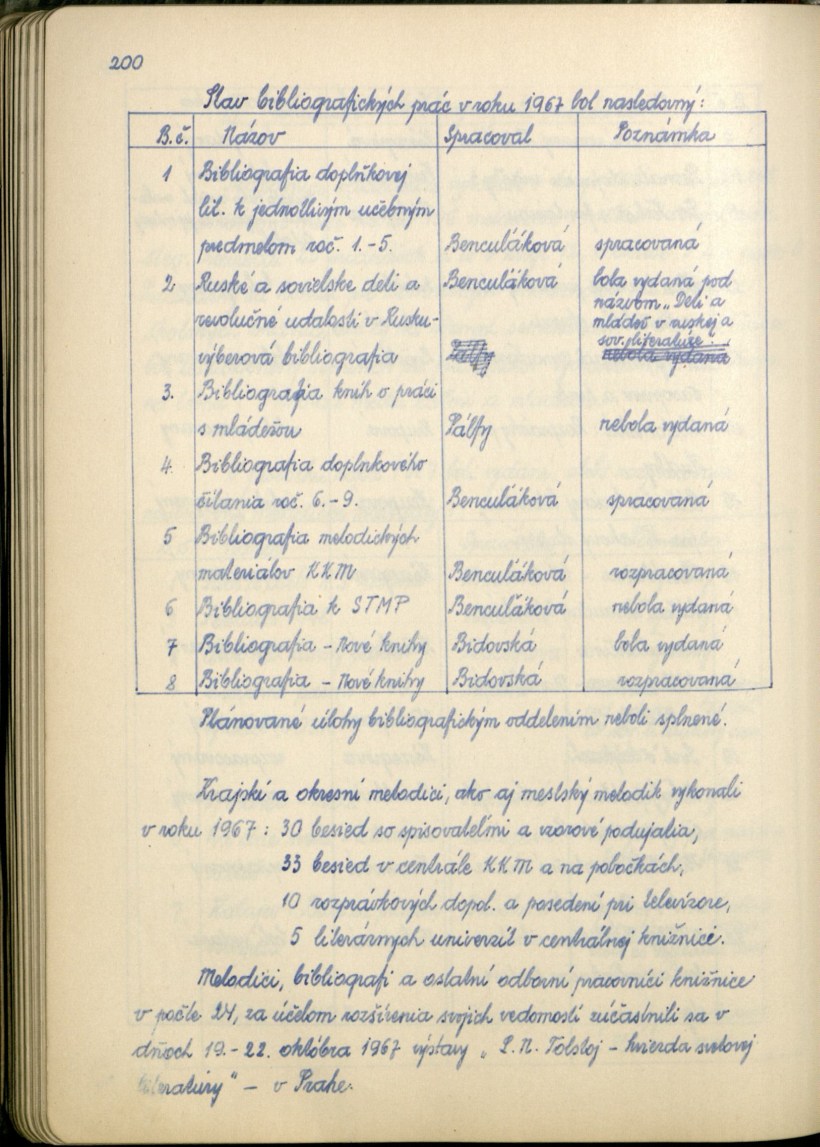 200
Stav bibliografických prác v roku 1967 bol nasledovný:
B.č. Názov Spracoval Poznámka
1 Bibliografia doplňkovej
lit. k jednotlivým učebným
predmetom roč. 1.-5. Benculáková spracovaná
2 Ruské a sovietske deti a Benculáková bola vydaná pod
názvom „Deti a
revolučné udalosti v Rusku- mládež v ruskej a
sov. literatúre.
výberová bibliografia Pálfy nebola vydaná
3. Bibliografia kníh o práci
s mládežou Pálfy nebola vydaná
4. Bibliografia doplnkového
čítania roč. 6.-9. Benculáková spracovaná
5 Bibliografia metodických
materiálov KKM Benculáková rozpracovaná
6 Bibliografia k STMP Benculáková nebola vydaná
7 Bibliografia - Nové knihy Bidovská bola vydaná
8 Bibliografia - Nové knihy Bidovská rozpracovaná
Plánované úlohy bibliografickým oddelením neboli splnené.
Krajskí a okresní metodici, ako aj mestský metodik vykonali
v roku 1967: 30 besied so spisovateľmi a vzorové podujatia,
33 besied v centrále KKM a na pobočkách,
10 rozprávkových dopol. a posedení pri televízore,
5 literárnych univerzít v centrálnej knižnici.
Metodici, bibliografi a ostatní odborní pracovníci knižnice
v počte 24, za účelom rozšírenia svojich vedomostí zúčastnili sa v
dňoch 19.-22. októbra 1967 výstavy „L.N. Tolstoj - hviezda svetovej
literatúry" - v Prahe.